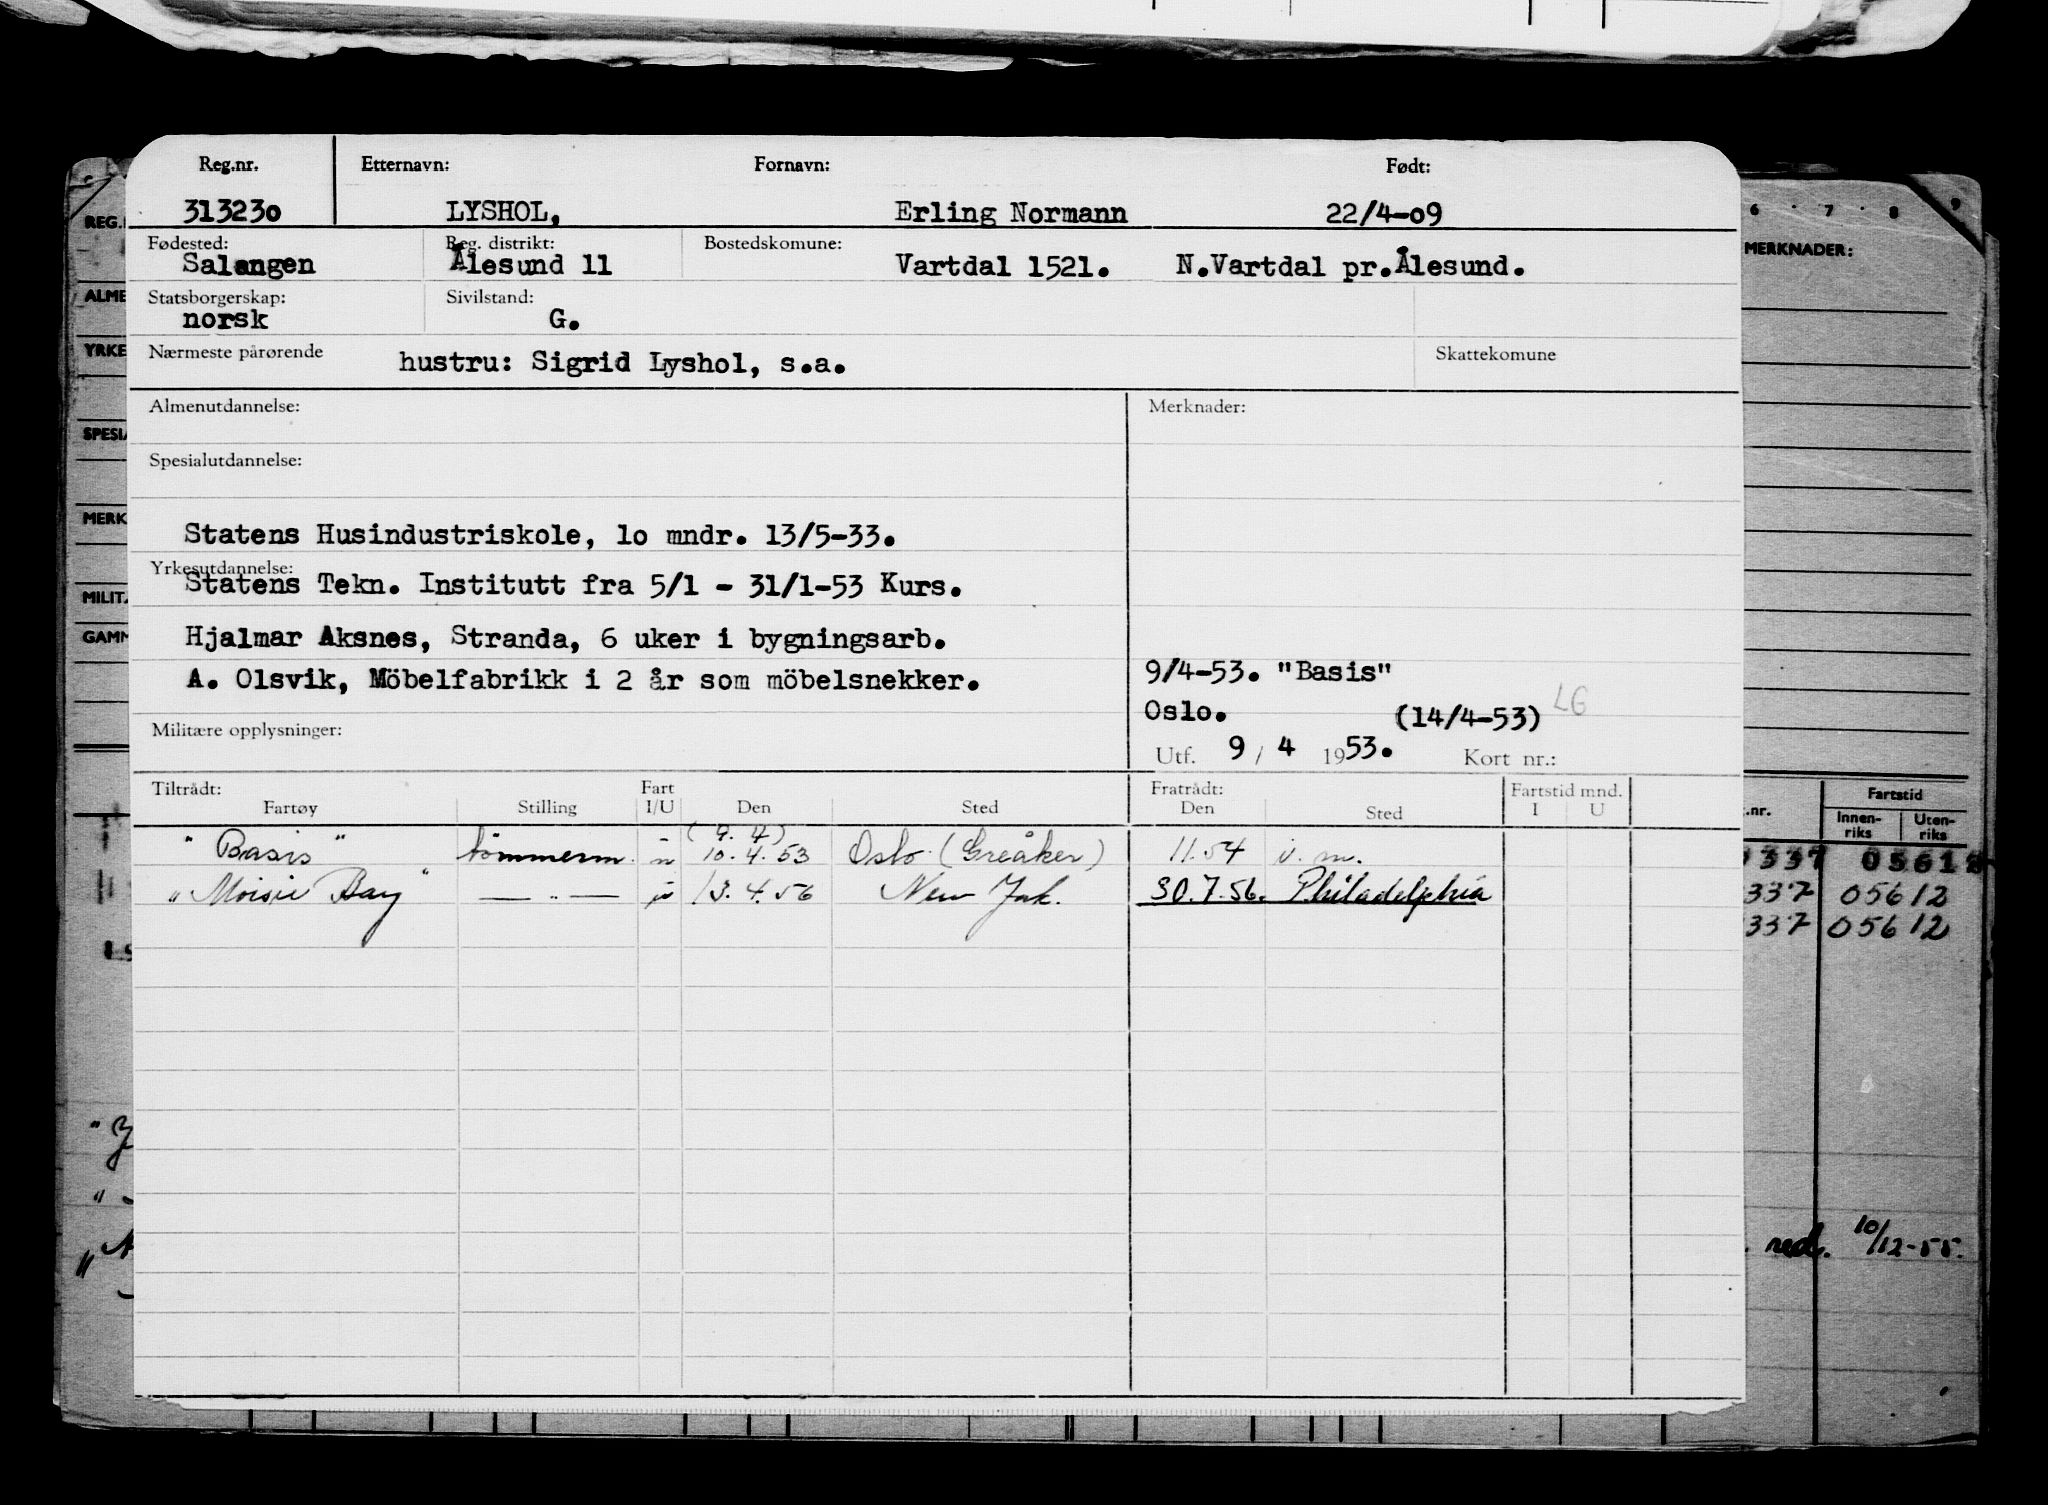 Reg.nr. Etternavn: Fornavn: Født:
313230 LYSHOL, Erling Normann 22/4-09
Fødested: Reg. distrikt: Bostedskomune:
Salangen Ålesund 11 Vartdal 1521. N.Vartdal pr.Ålesund.
Statsborgerskap: Sivilstand:
norsk G.
Nærmeste pårørende hustru: Sigrid Lyshol, s.a. Skattekomune
Almenutdannelse: Merknader:
Spesialutdannelse:
Statens Husindustriskole, 10 mndr. 13/5-33.
Yrkesutdannelse:
Statens Tekn. Institutt fra 5/1 - 31/1-53 Kurs.
Hjalmar Aksnes, Stranda, 6 uker i bygningsarb.
A. Olsvik, Möbelfabrikk i 2 år som möbelsnekker.
9/4-53. "Basis"
Oslo. (14/4-53) LG
Militære opplysninger:
Utf. 9 / 4 1953. Kort nr.:
Tiltrådt: Fart Fratrådt: Fartstid mnd.
Fartøy Stilling I/U Den Sted Den Sted I U
(9. 4)
"Basis" tømmerm. u 10.4.53 Oslo (Greåker) 11.54 i. m.
"Moisie Bay" — " — u 13.4.56 New York. 30.7.56. Philadelphia
REG.
ALME
YRKE
SPESIA
MERK
MILIT.
GAMM
6 7 8 9
MERKNADER:
.nr. Fartstid
Innen-riks Uten-riks
337 05612
337 05612
337 05612
red. 10/12-55.